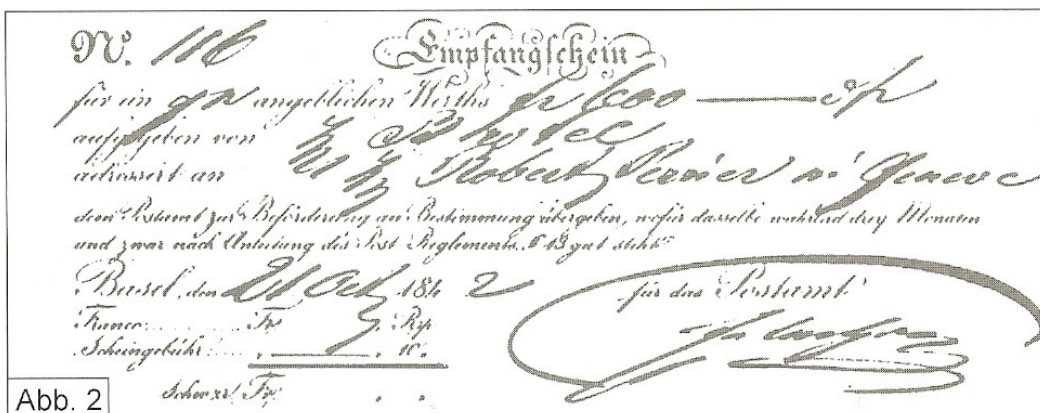 No. 116 Empfangschein
für ein angeblichen Werths 600
aufgegeben von
adressirt an Robert à Geneve
dem Postamt zur Beförderung an Bestimmung übergeben, wofür dasselbe während drey Monaten
und zwar nach Anleitung des Post Reglements, § 13 gut steht.
Basel, den 21 Oct 1842 für das Postamt
Franco Fr. Rp.
Scheingebühr 10.
Schweizr. Fr.
Abb. 2